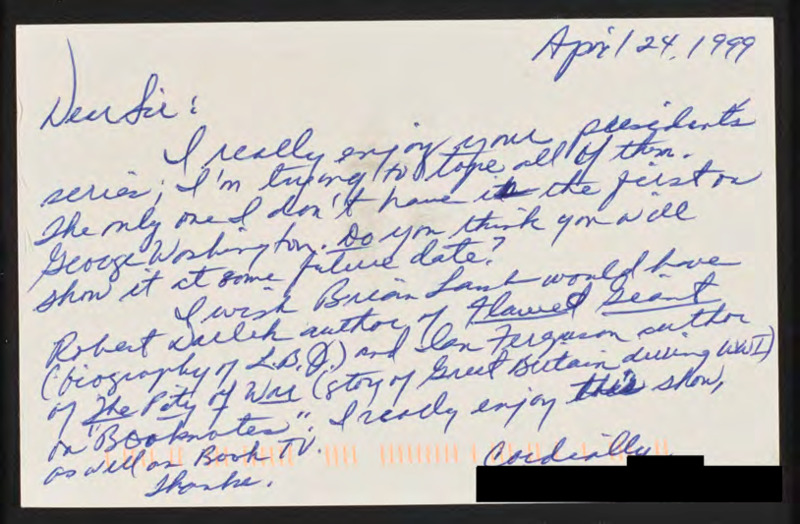 April 24, 1999
Dear Sir:
I really enjoy your presidents
series; I'm trying to tape all of them.
The only one I don't have is the first on
George Washington. Do you think you will
show it at some future date?
I wish Brian Lamb would have
Robert Dallek author of Flawed Giant
(biography of L.B.J.) and Ian Ferguson author
of The Pity of War (story of Great Britain during WWI)
on "Booknotes". I really enjoy this show,
as well as Book TV.
Thanks.
Cordially